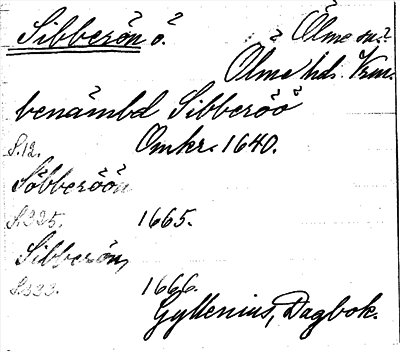 Sibberön ö. Ölme sn.?
Ölme hd. Vrm.
benämbd Sibberöö
S.12. Omkr. 1640.
Söbberöön
S.325. 1665.
Sibberön,
S.333. 1666.
Gyllenius, Dagbok.